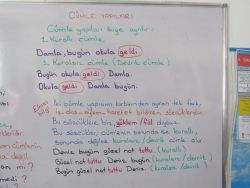 CÜMLE YAPILARI
Cümle yapıları ikiye ayrılır:
1. Kurallı cümle
Damla, bugün okula geldi.
2. Kuralsız cümle (Devrik cümle)
Bugün okula geldi Damla.
Okula geldi Damla bugün.
İki cümle yapısının birbirinden ayıran tek fark,
iş-oluş-eylem-hareket bildiren sözcüklerdir.
Bu sözcükler biz, yüklem/fiil diyoruz.
Bu sözcükler, cümlenin sonunda ise kurallı,
sonunda değilse kuralsız/devrik cümle olur.
Deniz bugün güzel not tuttu. (kurallı)
Güzel not tuttu Deniz bugün. (kuralsız/devrik)
Bugün güzel not tuttu Deniz. (kuralsız/devrik)